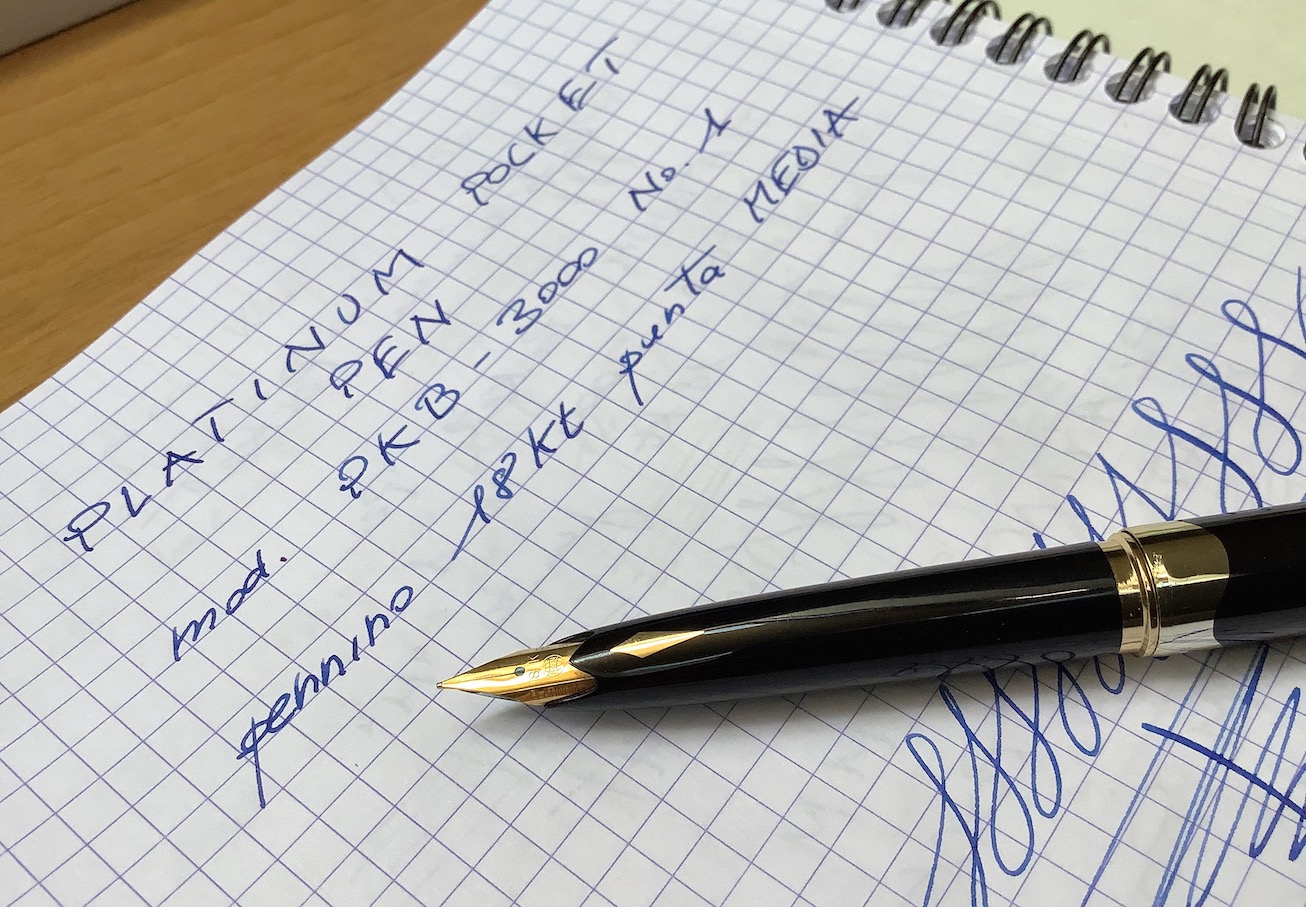 PLATINUM POCKET
PEN
mod. PKB-3000 No.1
pennino 18Kt punta MEDIA